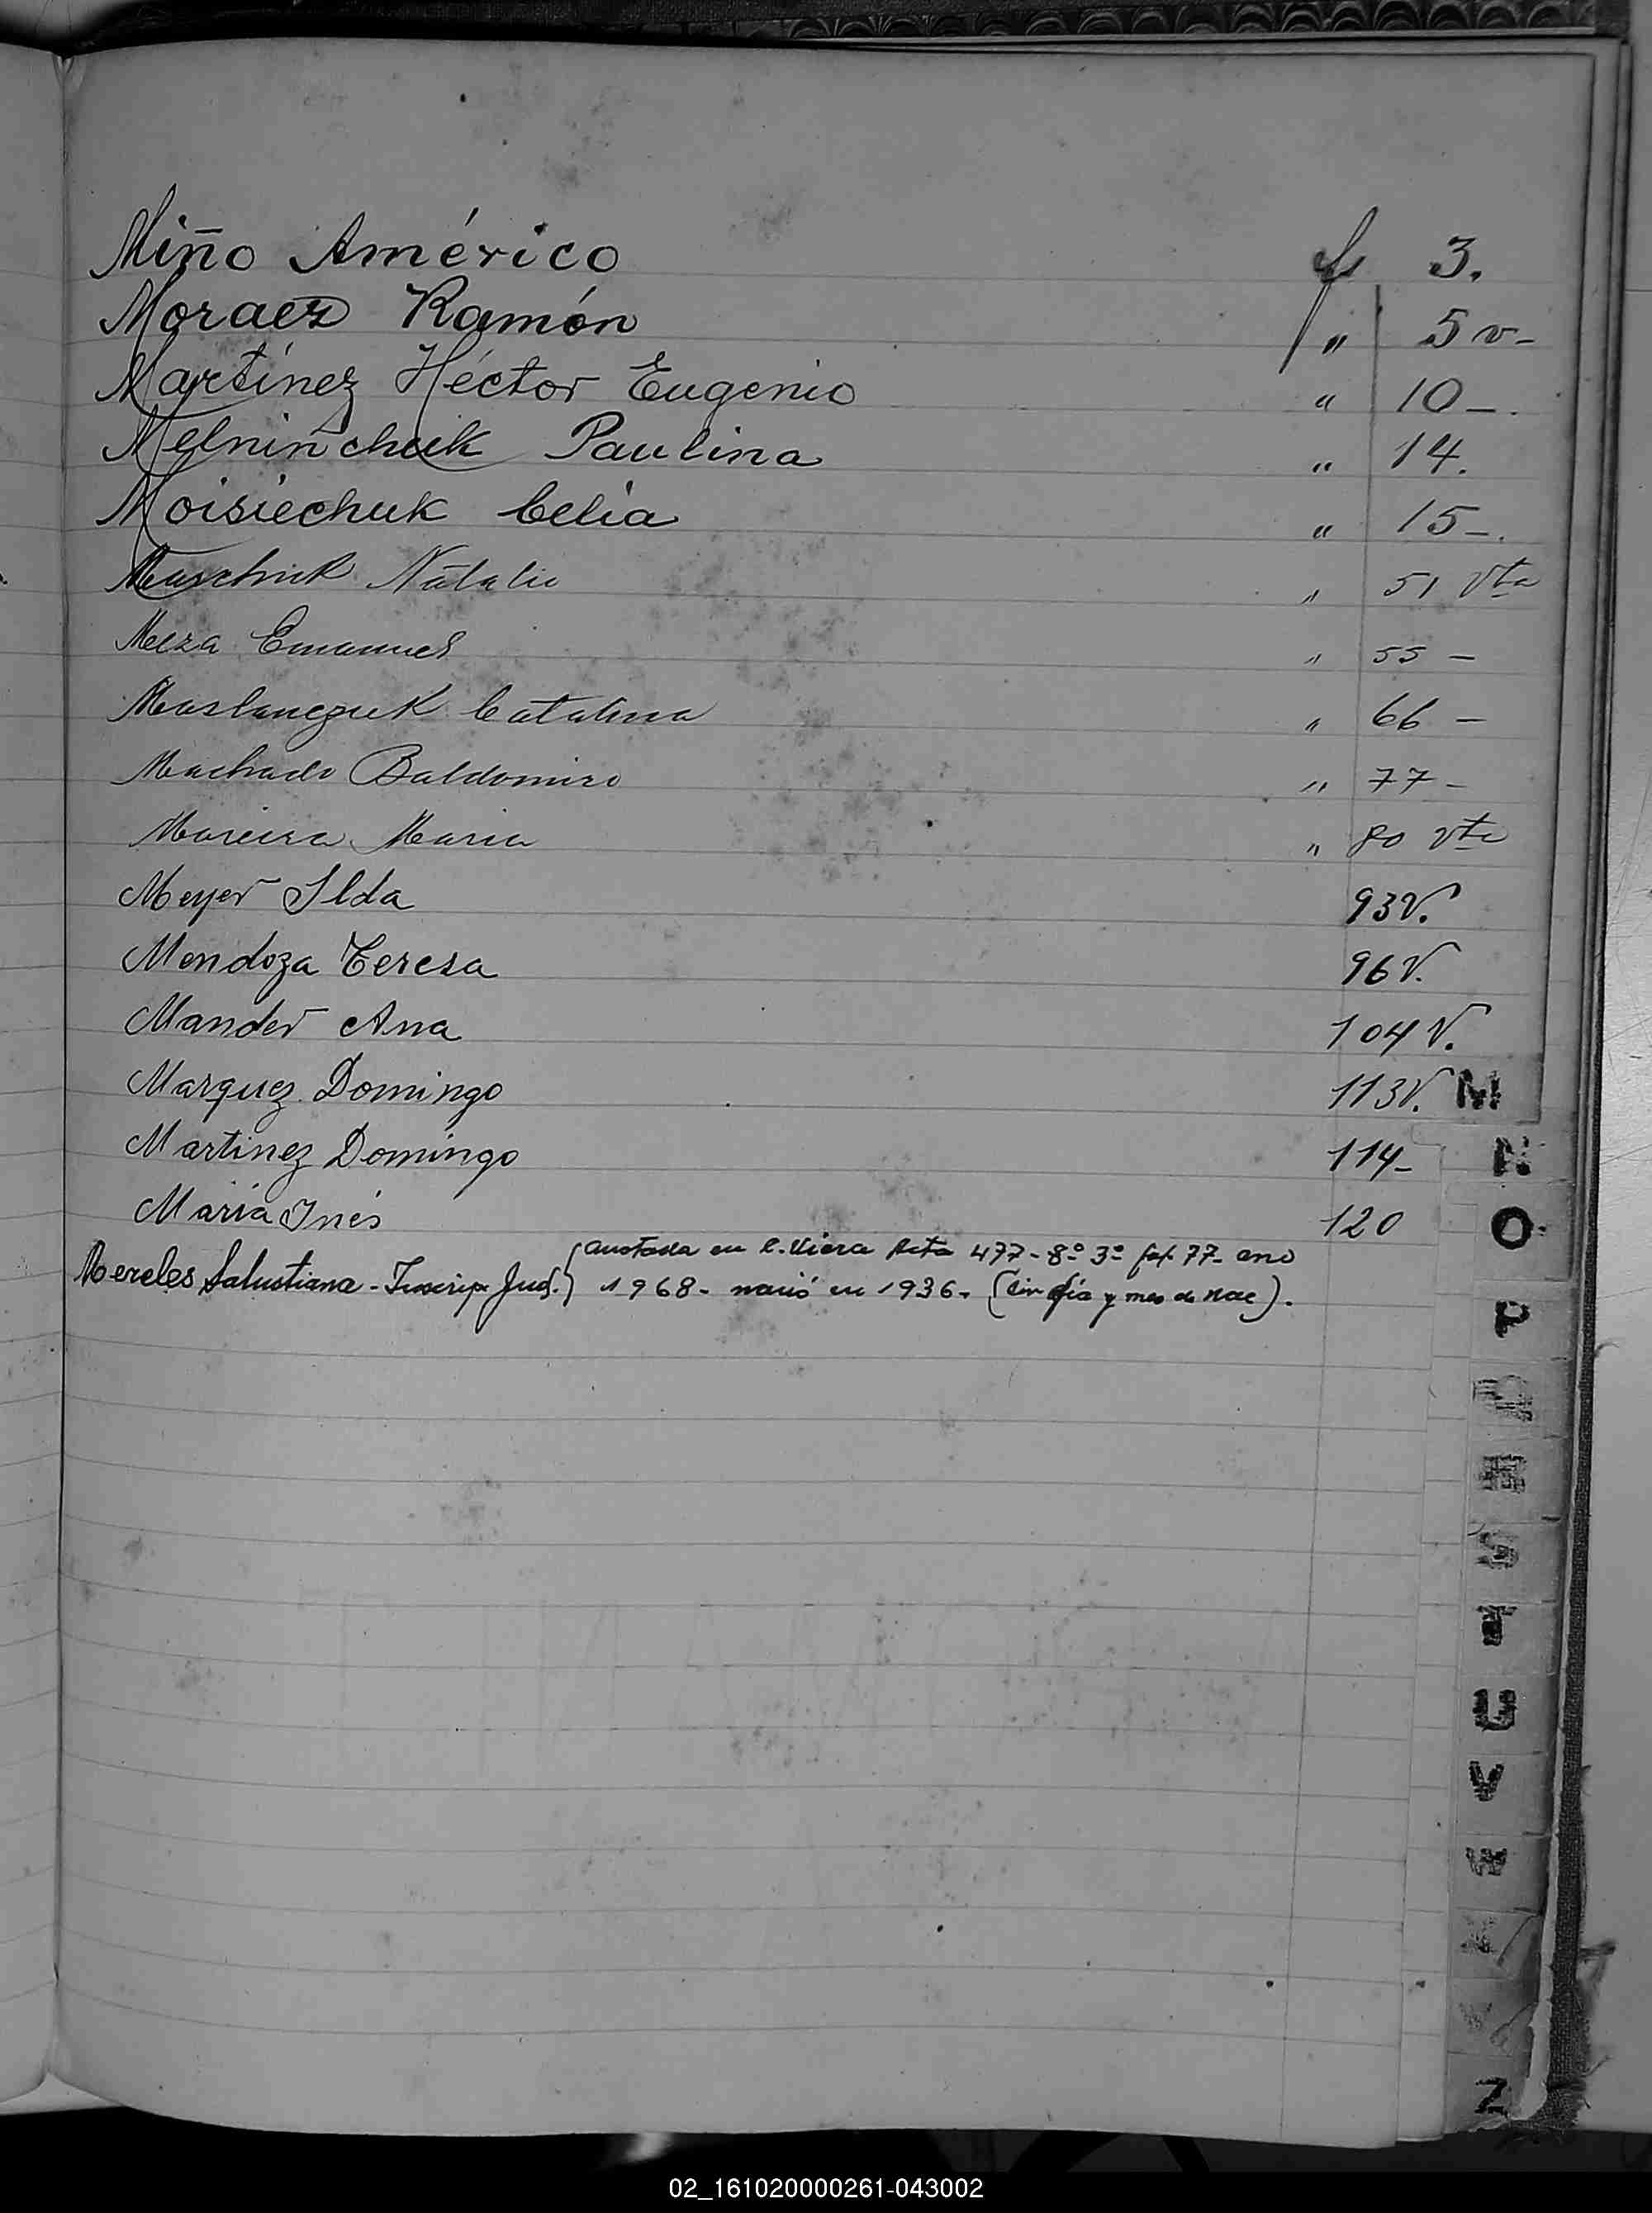 Miño Américo fs 3.
Moraez Ramón " 5 v-
Martínez Héctor Eugenio " 10-.
Melninchuk Paulina " 14.
Moisiechuk Celia " 15-.
Maschuk Natalio " 51 Vta
Meza Emanuel " 55 -
Maslanczuk Catalina " 66 -
Machado Baldomiro " 77-
Mareira Maria " 80 vta
Meyer Ilda 93V.
Mendoza Teresa 96V.
Mander Ana 104V.
Marquez Domingo 113V.
Martinez Domingo 114-
Maria Inés 120
anotada en C. Viera Acta 477-8º 3º fol. 77- ano
Mereles Salustiana - Inscrip. Jud. 1968- nació en 1936- (sin día y mes de nac).
M
N
O
P
Q
R
S
T
U
V
W
X
Y
Z
02_161020000261-043002